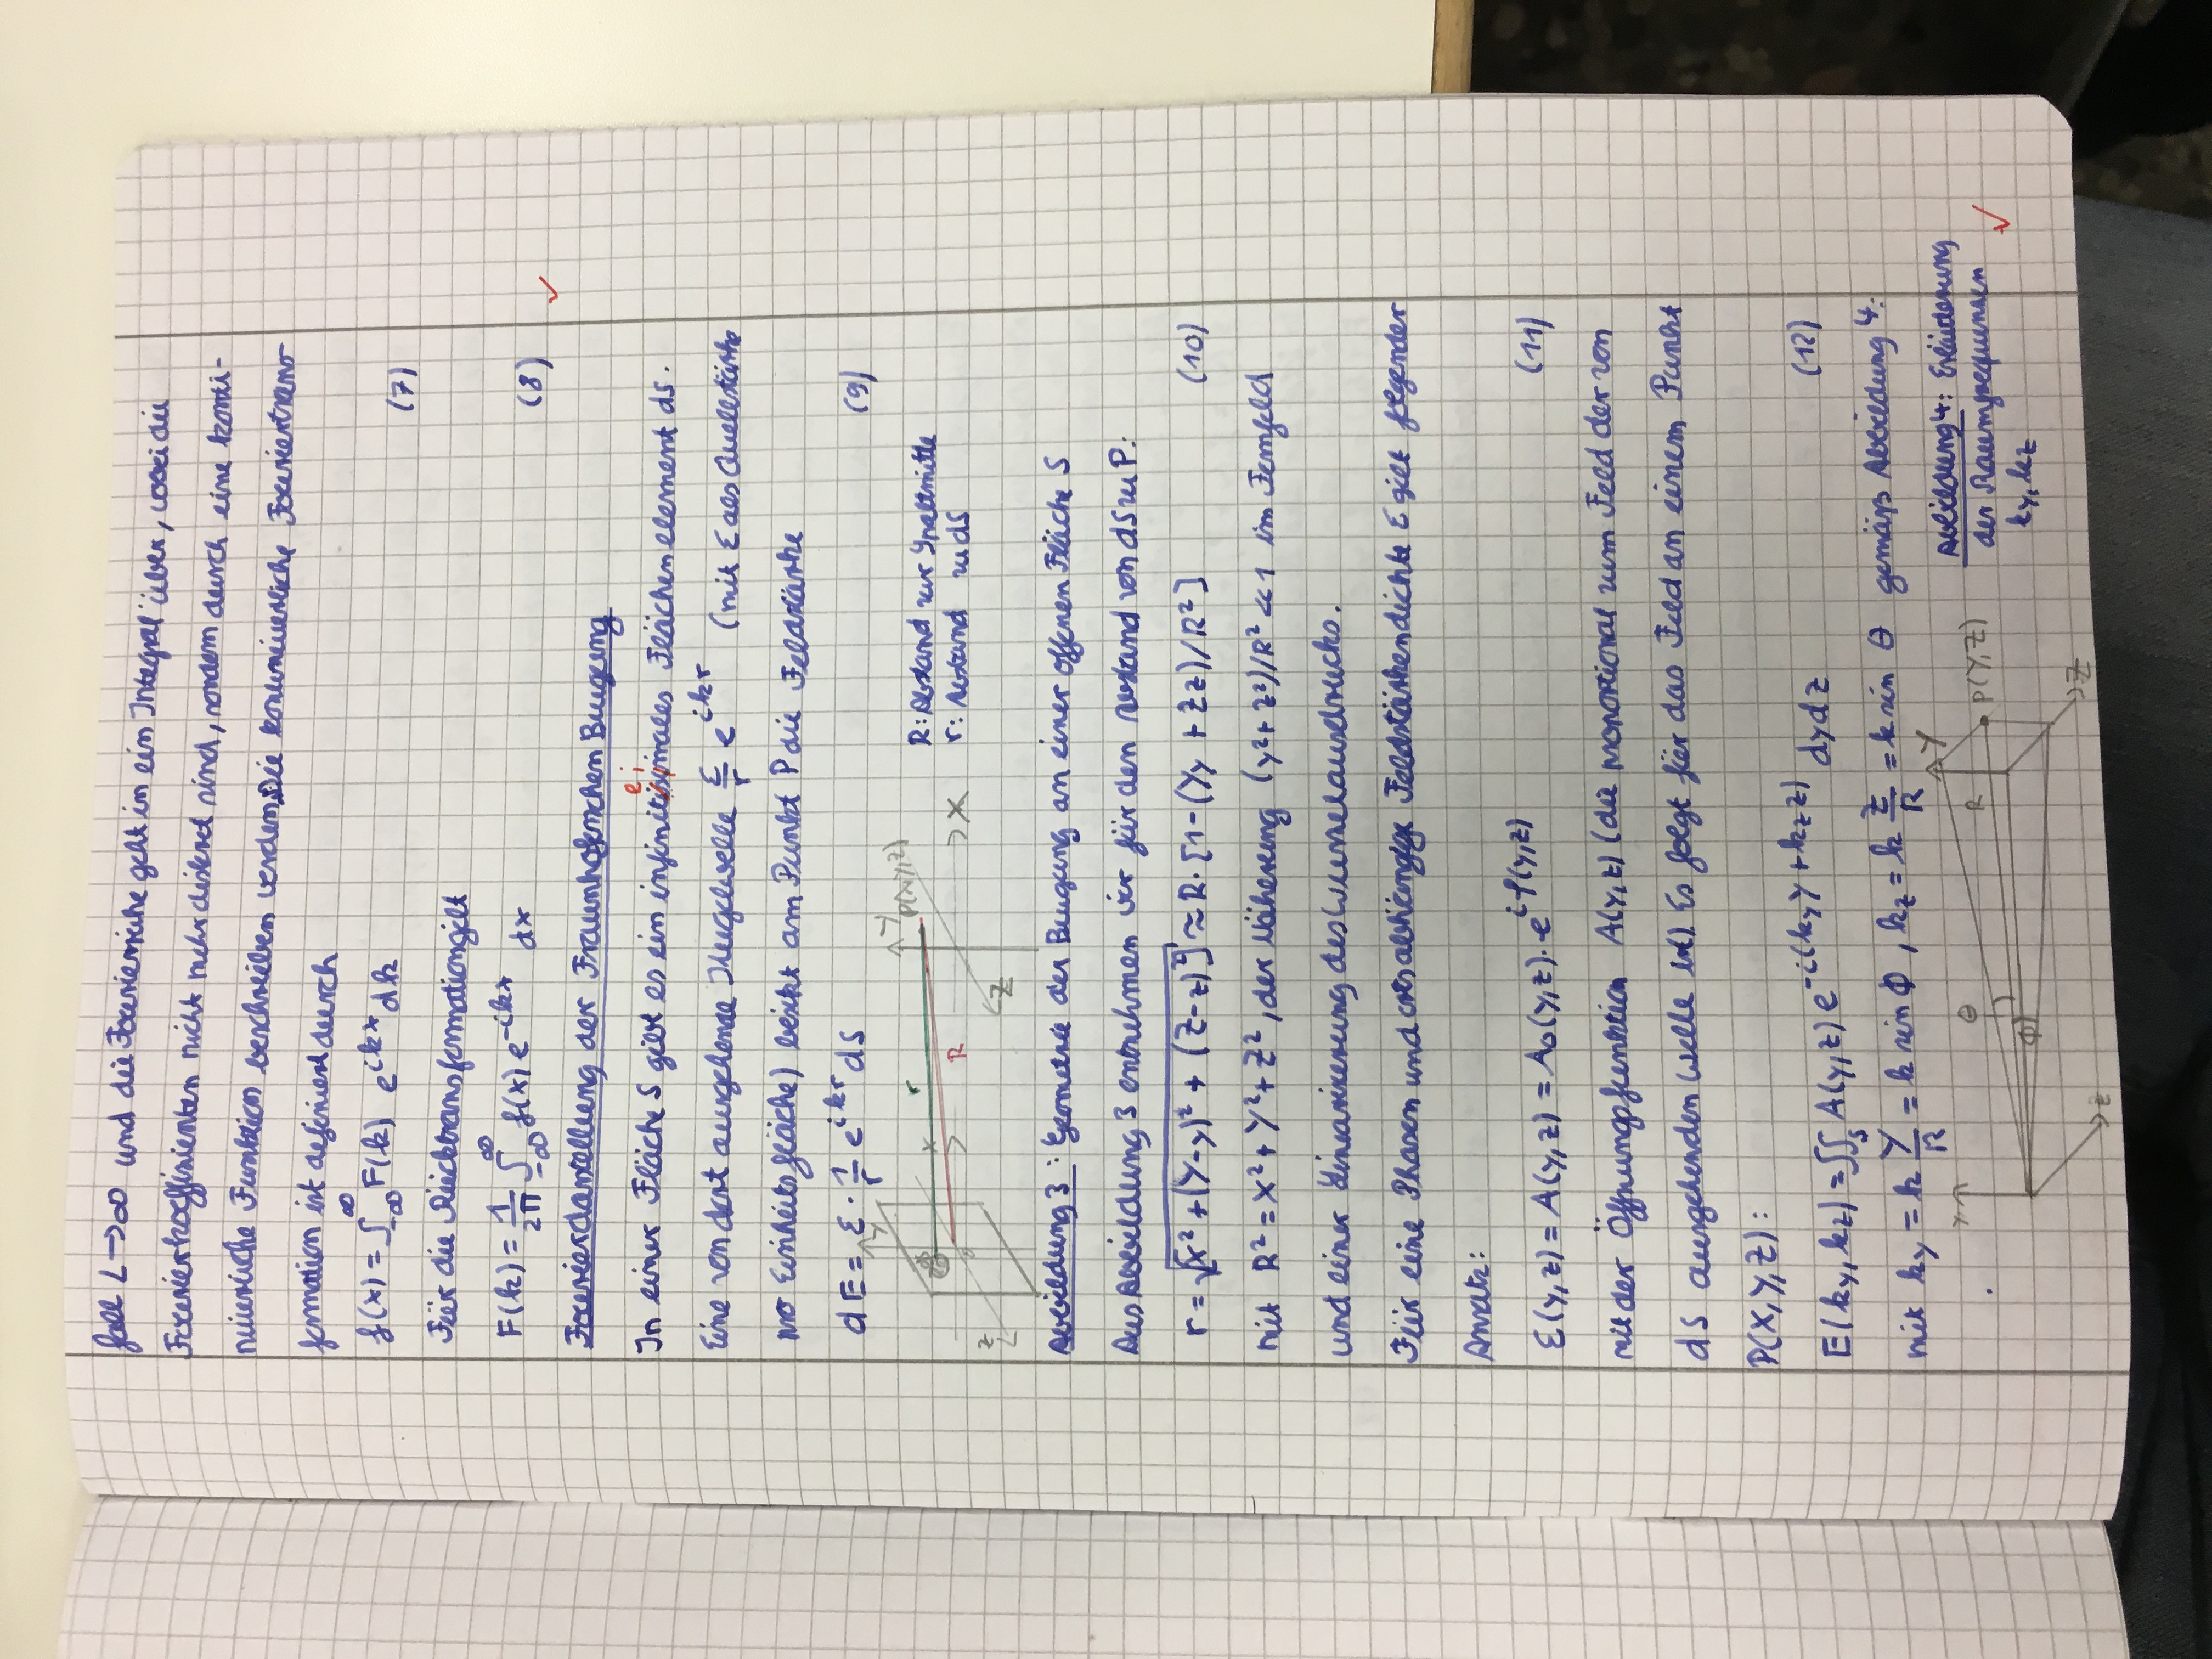 fall L→∞ und die Fourierreihe geht in ein Integral über, wobei die
Fourierkoeffizienten nicht mehr diskret sind, sondern durch eine konti-
nuierliche Funktion beschreiben werden. Die kontinuierliche Fouriertrans
formation ist definiert durch
f(x) = ∫_{-∞}^{∞} F(k) e^{ikx} dk (7)
Für die Rücktransformation gilt
F(k) = 1/2π ∫_{-∞}^{∞} f(x) e^{-ikx} dx (8) ✓
Fourierdarstellung der Fraunhoferschen Beugung
e i
In einer Fläche S gibt es ein infinitisimales Flächenelement dS.
Eine von dort ausgehende Kugelwelle ε/r e^{ikr} (mit ε als Quellstärke
pro Einheitsfläche) besitzt am Punkt P die Feldstärke
dE = ε · 1/r e^{ikr} dS (9)
Y Y P(X,Y,Z)
r
x R X
z Z
R: Abstand zur Spaltmitte
r: Abstand zu dS
Abbildung 3: Geometrie der Beugung an einer offenen Fläche S
Aus Abbildung 3 entnehmen wir für den Abstand von dS zu P:
r = √[X² + (Y-y)² + (Z-z)²] ≈ R · [1-(Yy + Zz)/R²] (10)
mit R² = X² + Y² + Z², der Näherung (y²+z²)/R² << 1 im Fernfeld
und einer Linearisierung des Wurzelausdrucks.
Für eine Phasen und ortsabhängige Feldstärkendichte ε gilt folgender
Ansatz:
ε(y,z) = A(y,z) = A₀(y,z) · e^{iφ(y,z)} (11)
mit der Öffnungsfunktion A(y,z) (die proportional zum Feld der von
dS ausgehenden Welle ist). Es folgt für das Feld an einem Punkt
P(X,Y,Z):
E(k_y, k_z) = ∬_S A(y,z) e^{-i(k_y y + k_z z)} dy dz (12)
mit k_y = k Y/R = k sin Φ, k_z = k Z/R = k sin θ gemäß Abbildung 4:
Y Y
θ R P(Y,Z)
Φ
z Z
Abbildung 4: Erläuterung
der Raumfrequenzen
k_y, k_z ✓